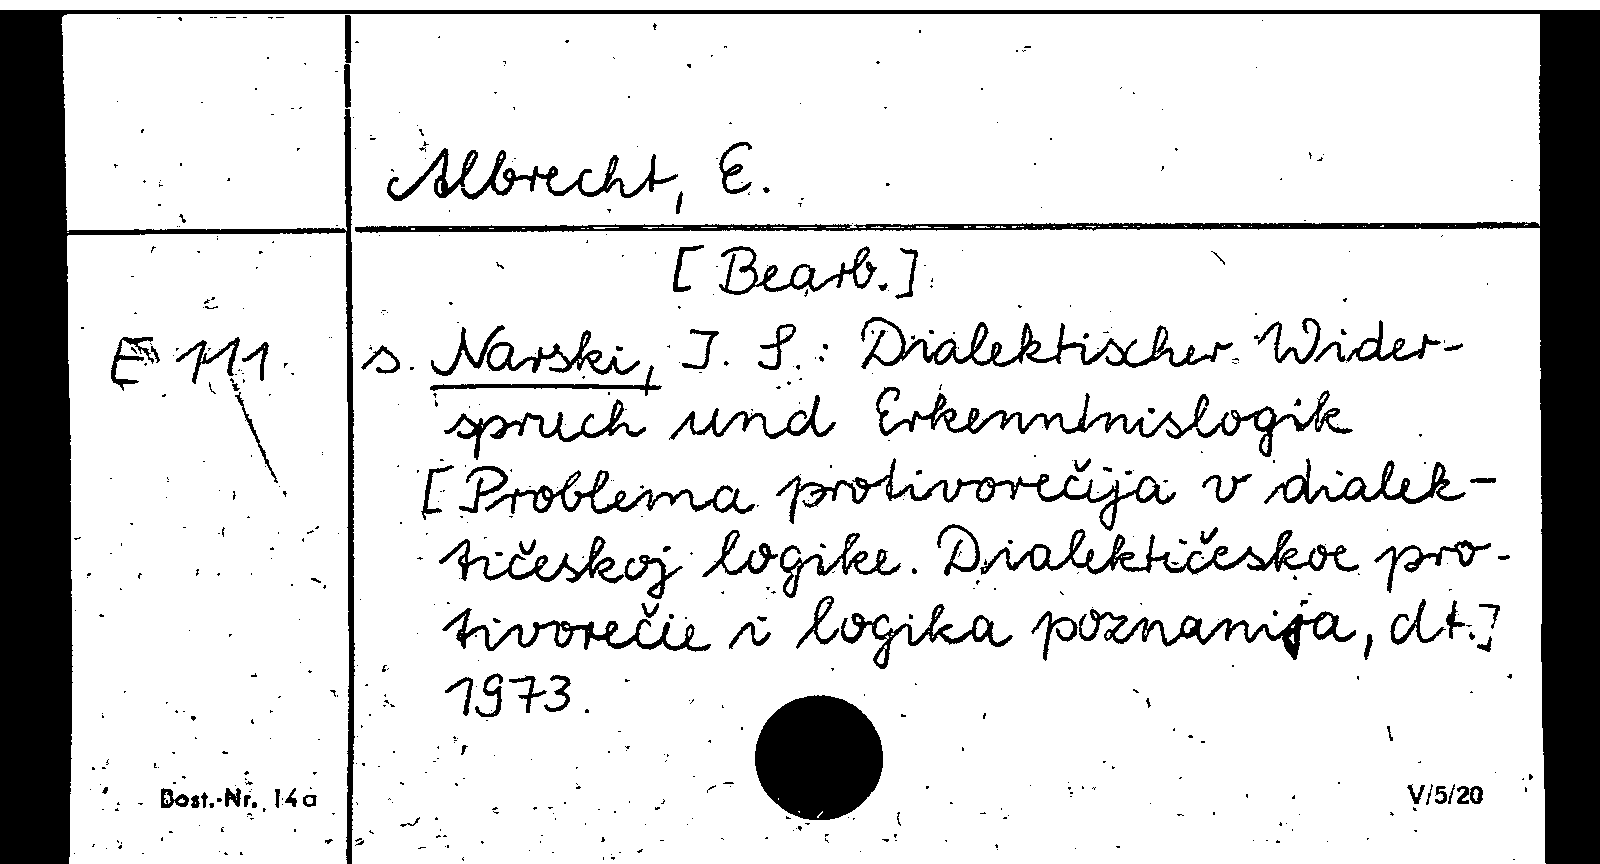 Albrecht, E.
[Bearb.]
E 111
s. Narski, I. S.: Dialektischer Wider-
spruch und Erkenntnislogik
[Problema protivorečija v dialek-
tičeskoj logike. Dialektičeskoe pro-
tivorečie i logika poznanija, dt.]
1973.
Best.-Nr. 14a
V/5/20